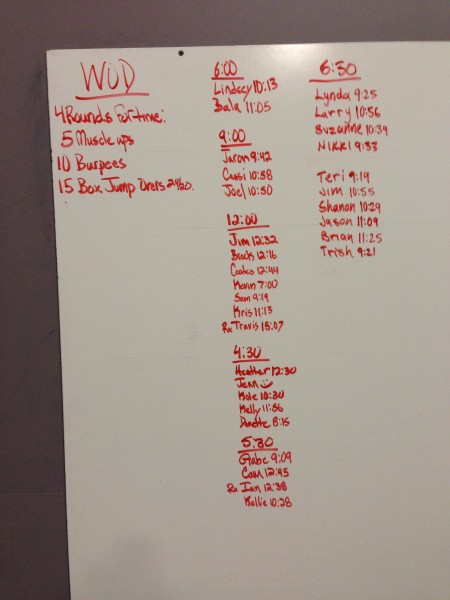 WOD
4 Rounds For time:
5 Muscle ups
10 Burpees
15 Box Jump Overs 24/20
6:00
Lindsey 10:13
Bala 11:05
9:00
Jaron 9:42
Cassi 10:58
Joel 10:50
12:00
Jim 12:32
Brooks 12:16
Coates 12:44
Kevin 7:00
Sam 9:19
Kris 11:13
Rx Travis 15:07
4:30
Heather 12:30
Jenn
Kole 10:30
Kelly 11:56
Danette 8:15
5:30
Gabe 9:09
Cam 12:45
Rx Ian 12:38
Kellie 10:28
6:30
Lynda 9:25
Larry 10:56
Suzanne 10:34
Nikki 9:33
Teri 9:19
Jim 10:55
Shanon 10:29
Jason 11:09
Brian 11:25
Trish 9:21